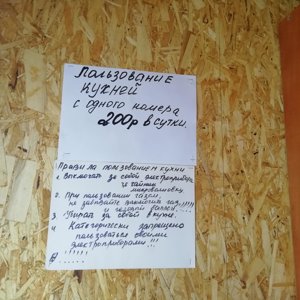 Пользование
кухней
с одного номера
200р в сутки.
Правила пользования кухни
1. Включать за собой электроприборы
чайник
микроволновку
2. При пользовании газом,
не забывайте выключать газ,!!!!!
и
3. Убирай за собой в кухне.
4 Категорически запрещено
пользоваться своими
электроприборами!!!